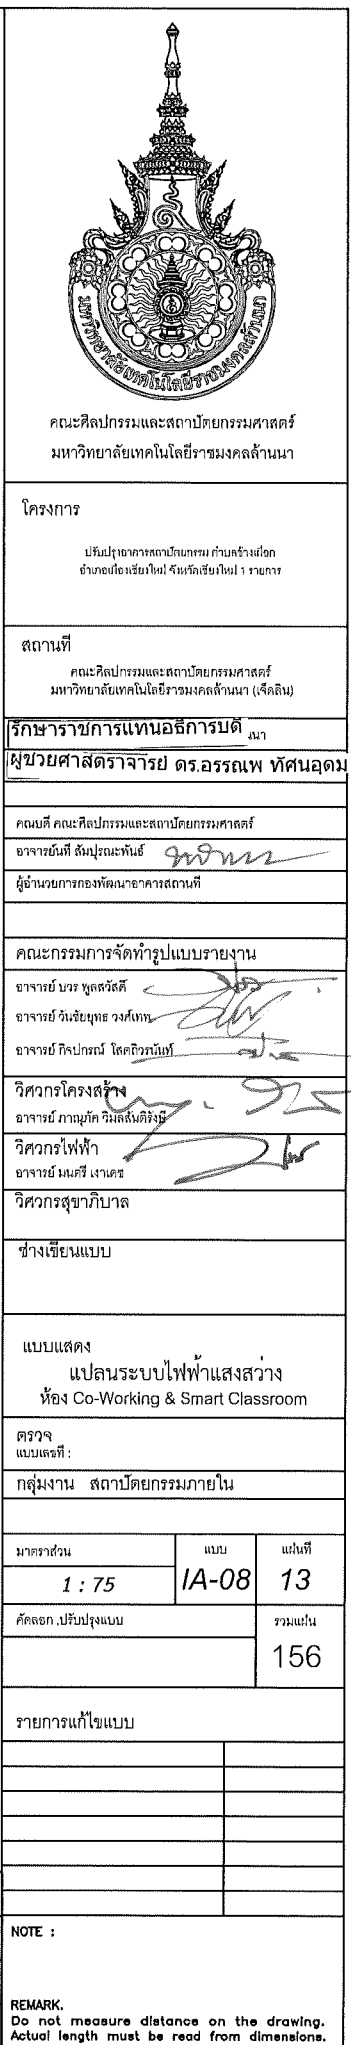 มหาวิทยาลัยเทคโนโลยีราชมงคลล้านนา
คณะศิลปกรรมและสถาปัตยกรรมศาสตร์
มหาวิทยาลัยเทคโนโลยีราชมงคลล้านนา
โครงการ
ปรับปรุงอาคารสถาปัตยกรรม ตำบลช้างเผือก
อำเภอเมืองเชียงใหม่ จังหวัดเชียงใหม่ 1 รายการ
สถานที่
คณะศิลปกรรมและสถาปัตยกรรมศาสตร์
มหาวิทยาลัยเทคโนโลยีราชมงคลล้านนา (เจ็ดลิน)
รักษาราชการแทนอธิการบดี
ผู้ช่วยศาสตราจารย์ ดร.อรรณพ ทัศนอุดม
คณบดี คณะศิลปกรรมและสถาปัตยกรรมศาสตร์
อาจารย์นที สัมปุรณะพันธ์
ผู้อำนวยการกองพัฒนาอาคารสถานที่
คณะกรรมการจัดทำรูปแบบรายงาน
อาจารย์ บวร พูลสวัสดิ์
อาจารย์ วันชัยยุทธ วงศ์เทพ
อาจารย์ กิจปกรณ์ โสตถิวรนันท์
วิศวกรโครงสร้าง
อาจารย์ ภาณุภัค วิมลสันติรังษี
วิศวกรไฟฟ้า
อาจารย์ มนตรี เงาเดช
วิศวกรสุขาภิบาล
ช่างเขียนแบบ
แบบแสดง
แปลนระบบไฟฟ้าแสงสว่าง
ห้อง Co-Working & Smart Classroom
ตรวจ
แบบเลขที่ :
กลุ่มงาน สถาปัตยกรรมภายใน
มาตราส่วน แบบ แผ่นที่
1 : 75 IA-08 13
คัดลอก ,ปรับปรุงแบบ รวมแผ่น
156
รายการแก้ไขแบบ
NOTE :
REMARK.
Do not measure distance on the drawing.
Actual length must be read from dimensions.